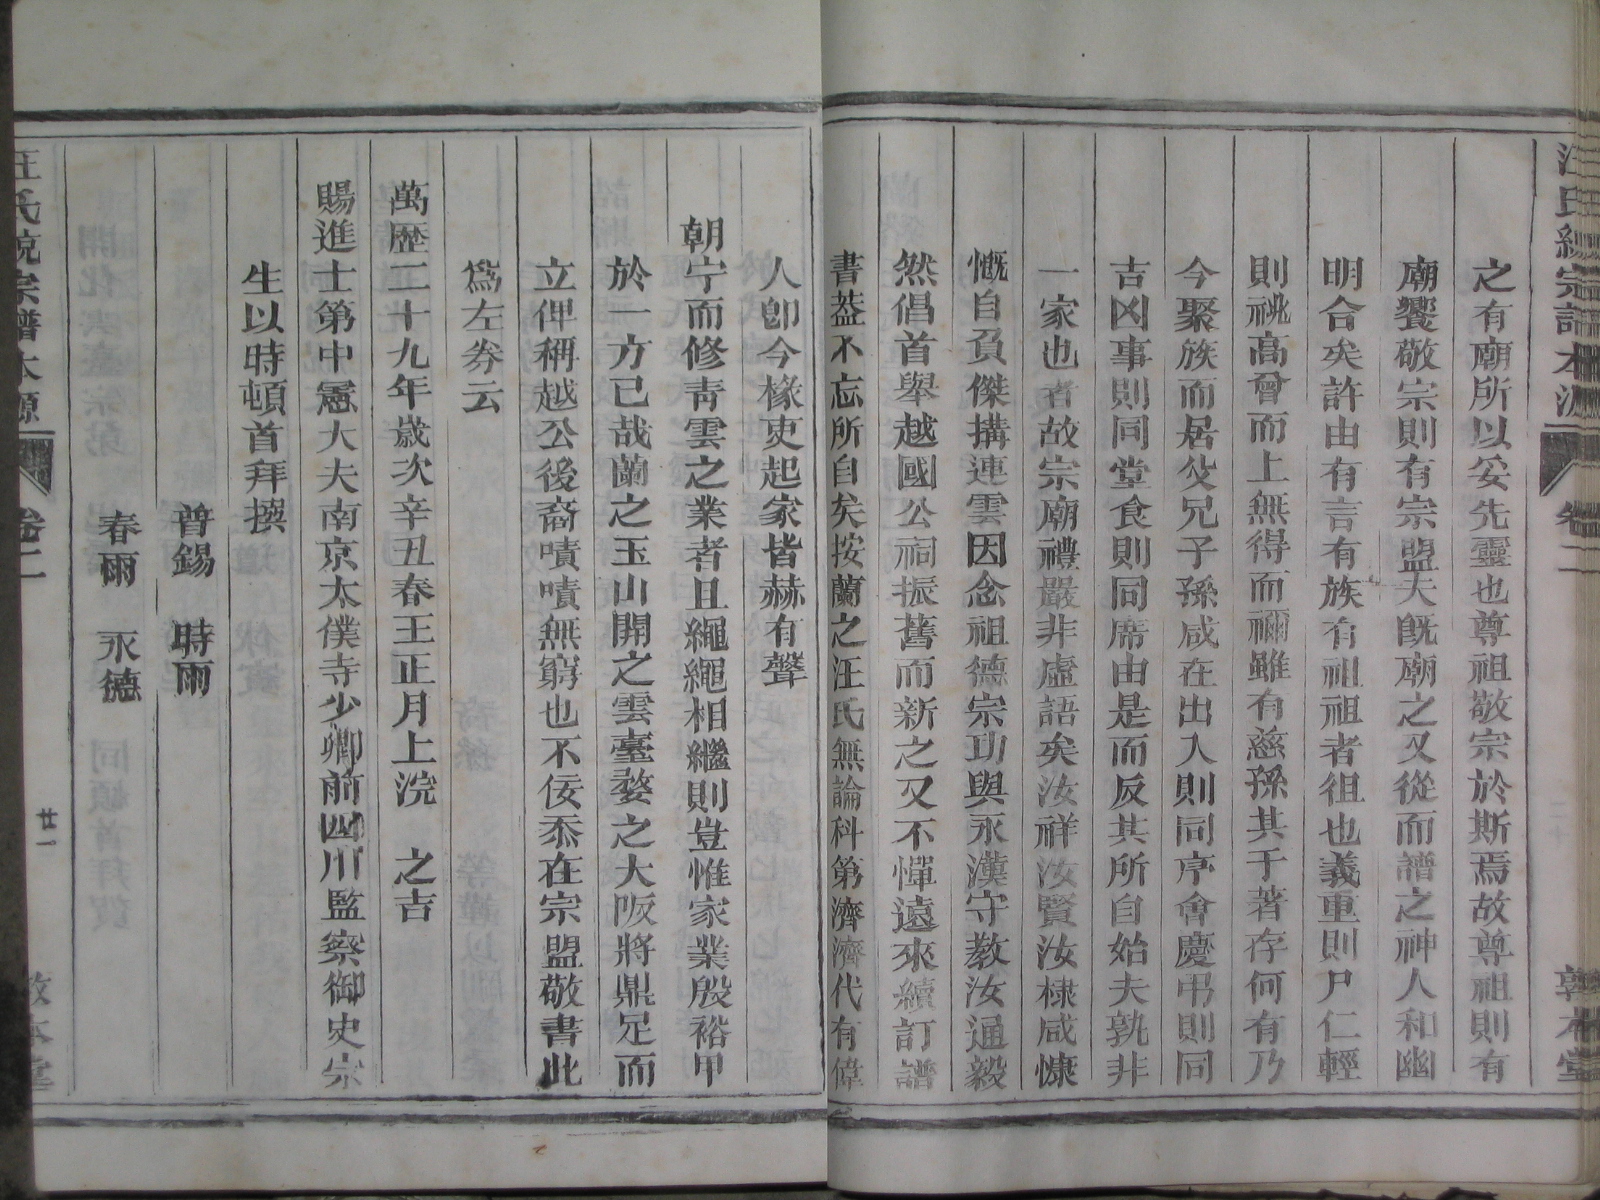 汪氏統宗譜本源 卷二 敦本堂
之有廟所以妥先靈也尊祖敬宗於斯焉故尊祖則有
廟饗敬宗則有宗盟夫既廟之又從而譜之神人和幽
明合矣許由有言有族有祖祖者徂也義重則尸仁輕
則祧高曾而上無得而禰雖有慈孫其于著存何有乃
今聚族而居父兄子孫咸在出入則同序會慶弔則同
吉凶事則同堂食則同席由是而反其所自始夫孰非
一家也者故宗廟禮嚴非虛語矣汝祥汝賢汝棣咸慷
慨自負傑搆連雲因念祖德宗功與永漢守教汝通毅
然倡首舉越國公祠振舊而新之又不憚遠來續訂譜
書葢不忘所自矣按蘭之汪氏無論科第濟濟代有偉
人卽今椽吏起家皆赫有聲
朝宁而修靑雲之業者且繩繩相繼則豈惟家業殷裕甲
於一方已哉蘭之玉山開之雲臺婺之大阪將鼎足而
立俾稱越公後裔嘖嘖無窮也不佞忝在宗盟敬書此
爲左劵云
萬歷二十九年歲次辛丑春王正月上浣 之吉
賜進士第中憲大夫南京太僕寺少卿前四川監察御史宗
生以時頓首拜撰
普錫 時雨
春雨 永德
汪氏統宗譜本源 卷二 廿一 敦本堂